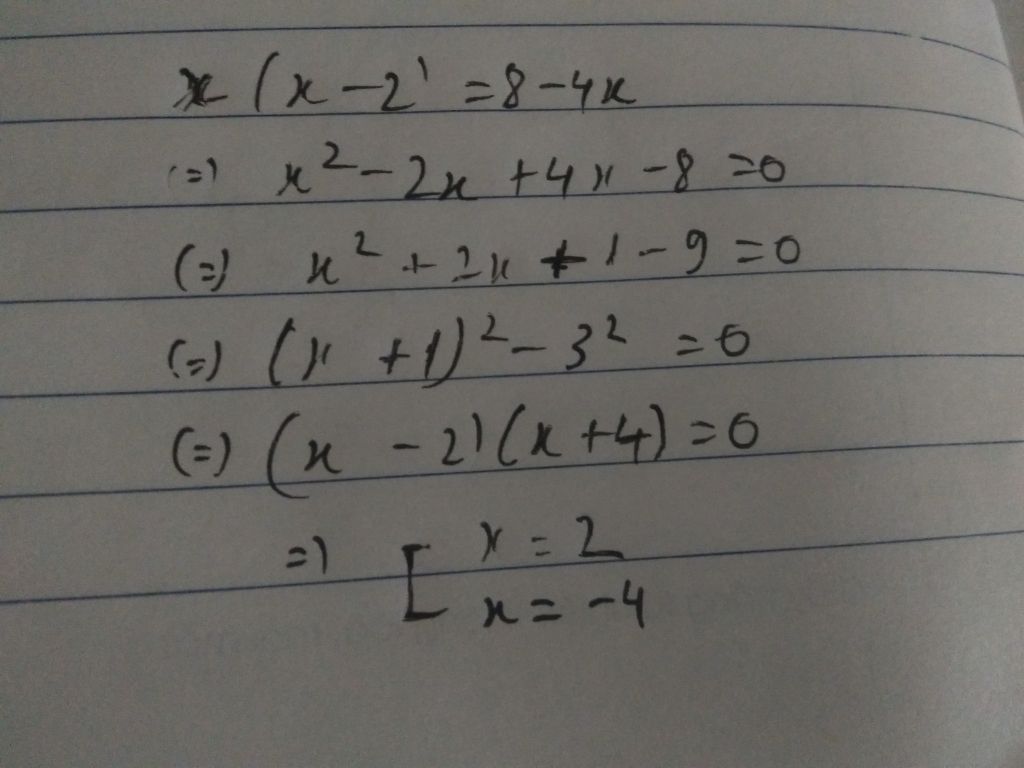 x (x - 2) = 8 - 4x
(=) x² - 2x + 4x - 8 = 0
(=) x² + 2x + 1 - 9 = 0
(=) (x + 1)² - 3² = 0
(=) (x - 2)(x + 4) = 0
=) [ x = 2
x = -4